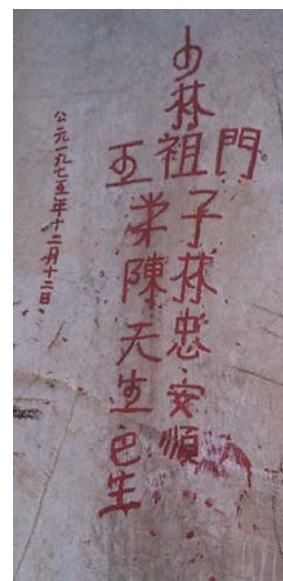 少林
五祖門
弟子
林忠安順
陳天生巴生
公元一九七五年十二月十二日